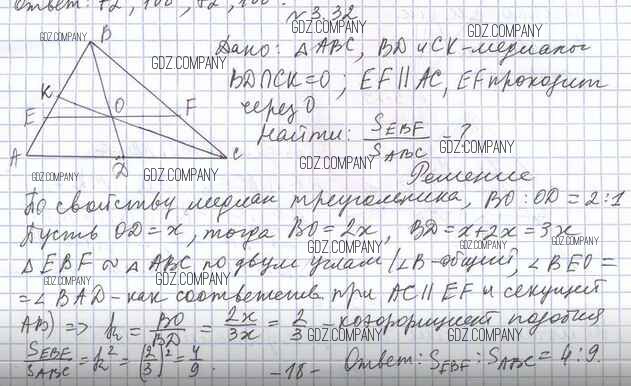 Ответ: 72°, 108°, 72°, 108°.
№3.32
GDZ.COMPANY
Дано: △ABC, BD и CK-медианы
BD∩CK=O; EF∥AC, EF проходит
через O
Найти: S_EBF/S_ABC - ?
B K E O F A D C
Решение
По свойству медиан треугольника, BO:OD=2:1
Пусть OD=x, тогда BO=2x, BD=x+2x=3x
△EBF ∾ △ABC по двум углам (∠B-общий, ∠BEO=
=∠BAD-как соответств. при AC∥EF и секущей
AB) => k = BO/BD = 2x/3x = 2/3 - коэффициент подобия
S_EBF/S_ABC = k² = (2/3)² = 4/9. Ответ: S_EBF:S_ABC=4:9.
-18-